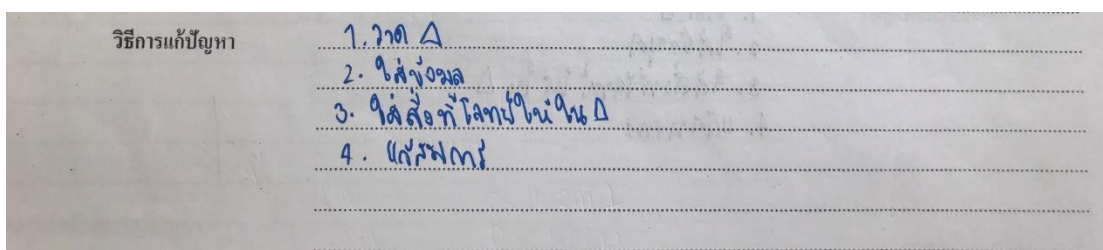 วิธีการแก้ปัญหา 1. วาด △
2. ใส่ข้อมูล
3. ใส่สิ่งที่โจทย์ให้ใน △
4. แก้สมการ